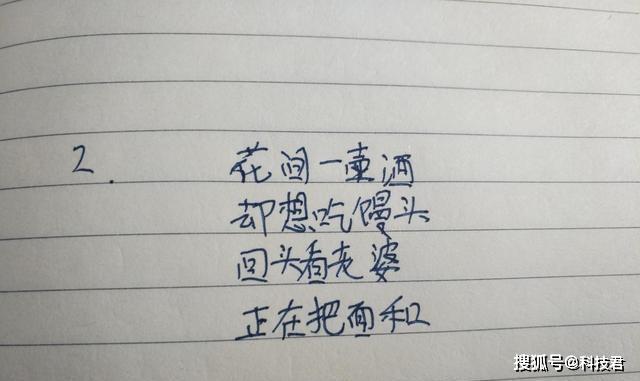 2.
花间一壶酒
却想吃馒头
回头看老婆
正在把面和
搜狐号@科技君